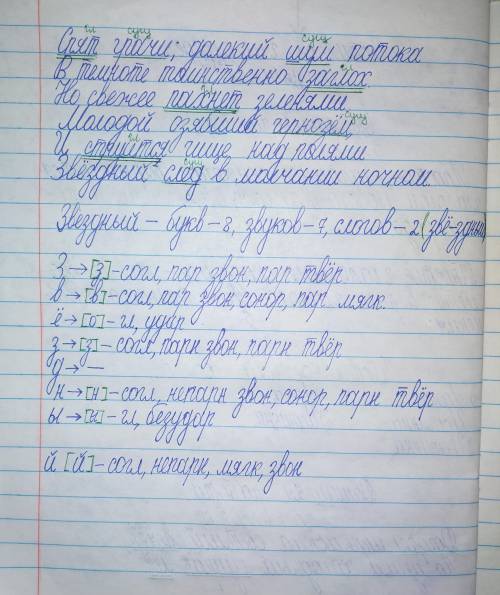 гл сущ сущ
Спят грачи; далекий шум потока
В темноте таинственно заглох.
Но свежее пахнет зеленями
Молодой озябший чернозём,
И струится чище над полями
Звёздный свет в молчании ночном.
Звездный – букв – 8, звуков – 7, слогов – 2 (звё-здный)
З → [з] – согл, пар звон, пар твёр
в → [в'] – согл, пар звон, сонор, пар мягк.
ё → [о] – гл, удар
з → [з] – согл, парн звон, парн твёр
д → —
н → [н] – согл, непарн звон, сонор, парн твёр
ы → [ы] – гл, безудар
й [й] – согл, непарн, мягк, звон